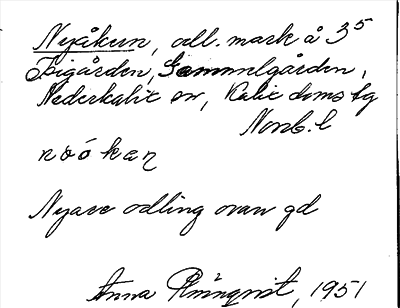 Nyåkern, odl. mark å 3⁵
Isigården, Gammelgården,
Nederkalix sn, Kalix doms bg
Norrb. l
Nyare odling ovan gd
Anna 1951